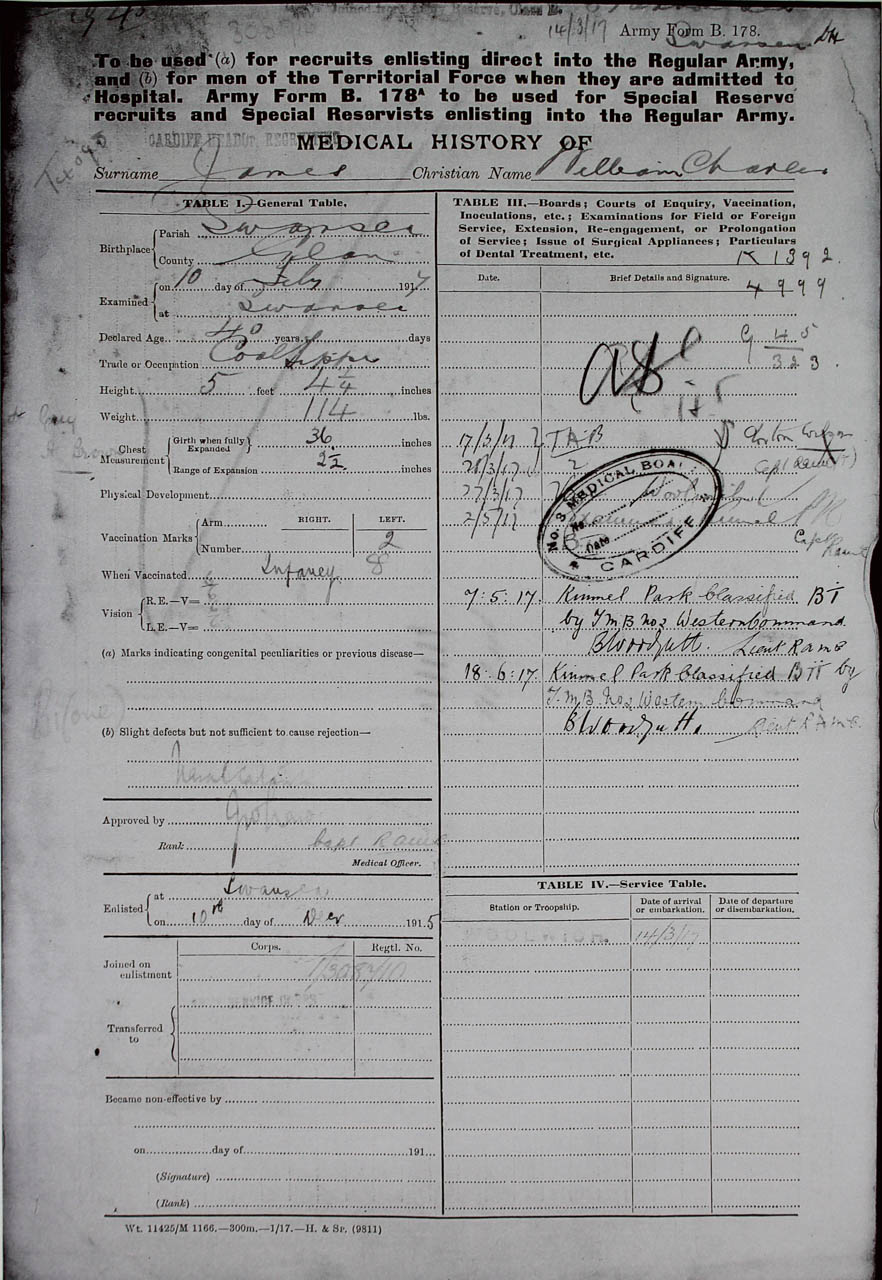 14/3/17 Army Form B. 178.
Swansea
To be used (a) for recruits enlisting direct into the Regular Army,
and (b) for men of the Territorial Force when they are admitted to
Hospital. Army Form B. 178A to be used for Special Reserve
recruits and Special Reservists enlisting into the Regular Army.
MEDICAL HISTORY OF
Surname James Christian Name William Charles
TABLE I.—General Table.
Birthplace Parish Swansea
County Glam
Examined on 10 day of July 1917
at Swansea
Declared Age 40 years days
Trade or Occupation Coal Tipper
Height 5 feet 4 1/4 inches
Weight 114 lbs.
Chest Measurement Girth when fully Expanded 36 inches
Range of Expansion 2 1/2 inches
Physical Development
Vaccination Marks Arm RIGHT. LEFT.
Number 2
When Vaccinated Infancy
Vision R.E.—V=
L.E.—V=
(a) Marks indicating congenital peculiarities or previous disease—
(b) Slight defects but not sufficient to cause rejection—
Approved by
Rank Capt RAMC
Medical Officer.
Enlisted at Swansea
on 10th day of Dec 1915
Corps. Regtl. No.
Joined on enlistment
Transferred to
Became non-effective by
on day of 191
(Signature)
(Rank)
Wt. 11425/M 1166.—300m.—1/17.—H. & Sp. (9811)
TABLE III.—Boards; Courts of Enquiry, Vaccination,
Inoculations, etc.; Examinations for Field or Foreign
Service, Extension, Re-engagement, or Prolongation
of Service; Issue of Surgical Appliances; Particulars
of Dental Treatment, etc.
K 1392
Date. Brief Details and Signature.
4999
G 45
323
17/3/17 TAB
27/3/17
2/5/17
No. 3 MEDICAL BOARD
No.
Date
CARDIFF
7.5.17. Kinmel Park Classified BII
by T.M.B No 2 Western Command
B Woodyatt. Lieut RAMC
18.6.17. Kinmel Park Classified BII by
T.M.B. No 2 Western Command
B Woodyatt. Lieut RAMC
TABLE IV.—Service Table.
Station or Troopship. Date of arrival or embarkation. Date of departure or disembarkation.
WOOLWICH. 14/3/17